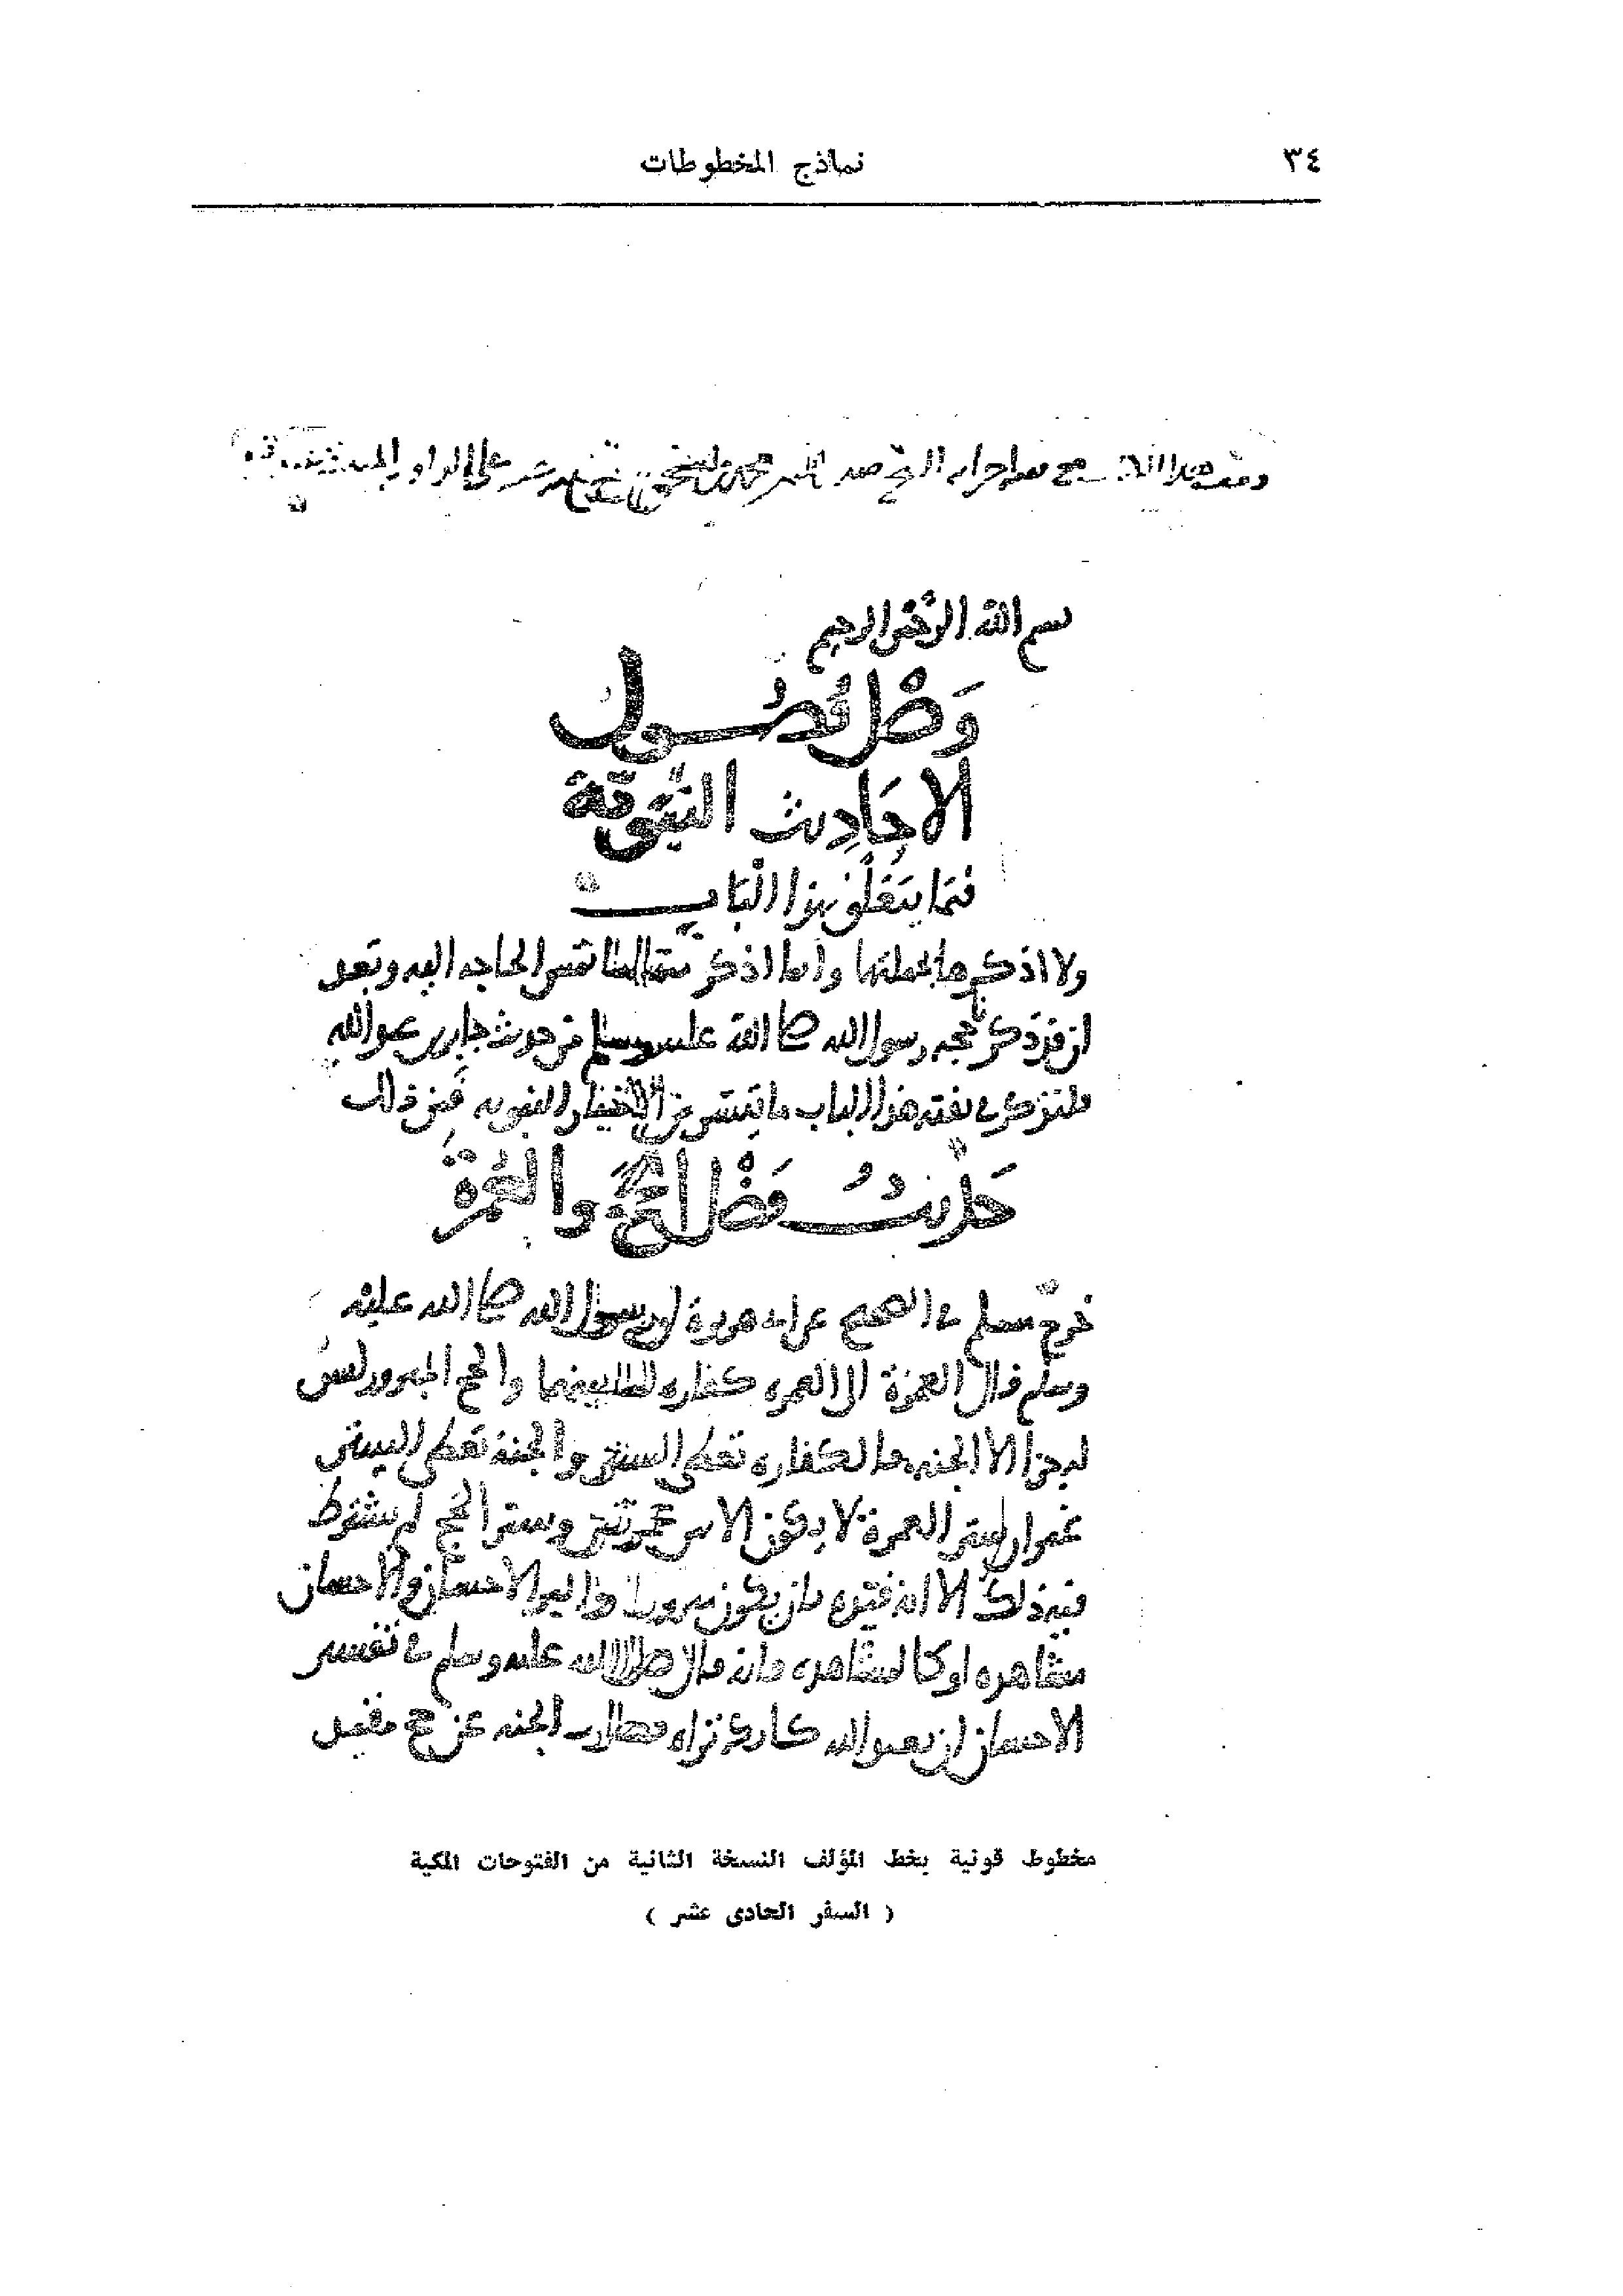 ٣٤
نماذج المخطوطات
بسم الله الرحمن الرحيم
وَصْل فُصُول
الاحَادِيث النبَوِيّة
فيمَا يتعَلّق بهذا البَاب
ولا اذكرها بجملتها وانما اذكر منها ما تمس الحاجه اليه وبعد
ان قد ذكرنا حجه رسول الله صلى الله عليه وسلم من حديث جابر بن عبد الله
فلنذكر في بقيه هذا الباب ما تيسر من الاخبار النبويه فمن ذلك
حَدِيثُ فَضْل الحَجّ والعُمْرَة
خرج مسلم في الصحيح عن ابي هريرة ان رسول الله صلى الله عليه
وسلم قال العمرة الى العمره كفاره لما بينهما والحج المبرور ليس
له جزا الا الجنه فالكفاره تعطى الستر والجنة تعطى الستر
غير ان ستر العمرة لا يكون الا بين عمرتين وستر الحج لم يشترط
فيه ذلك الا انه قيده بان يكون مبرورا والبر الاحسان والاحسان
مشاهده او كالمشاهده فانه قال صلى الله عليه وسلم في تفسير
الاحسان ان تعبد الله كانك تراه الجنه عن حج مقيد
مخطوط قونية بخط المؤلف النسخة الثانية من الفتوحات المكية
( السفر الحادى عشر )